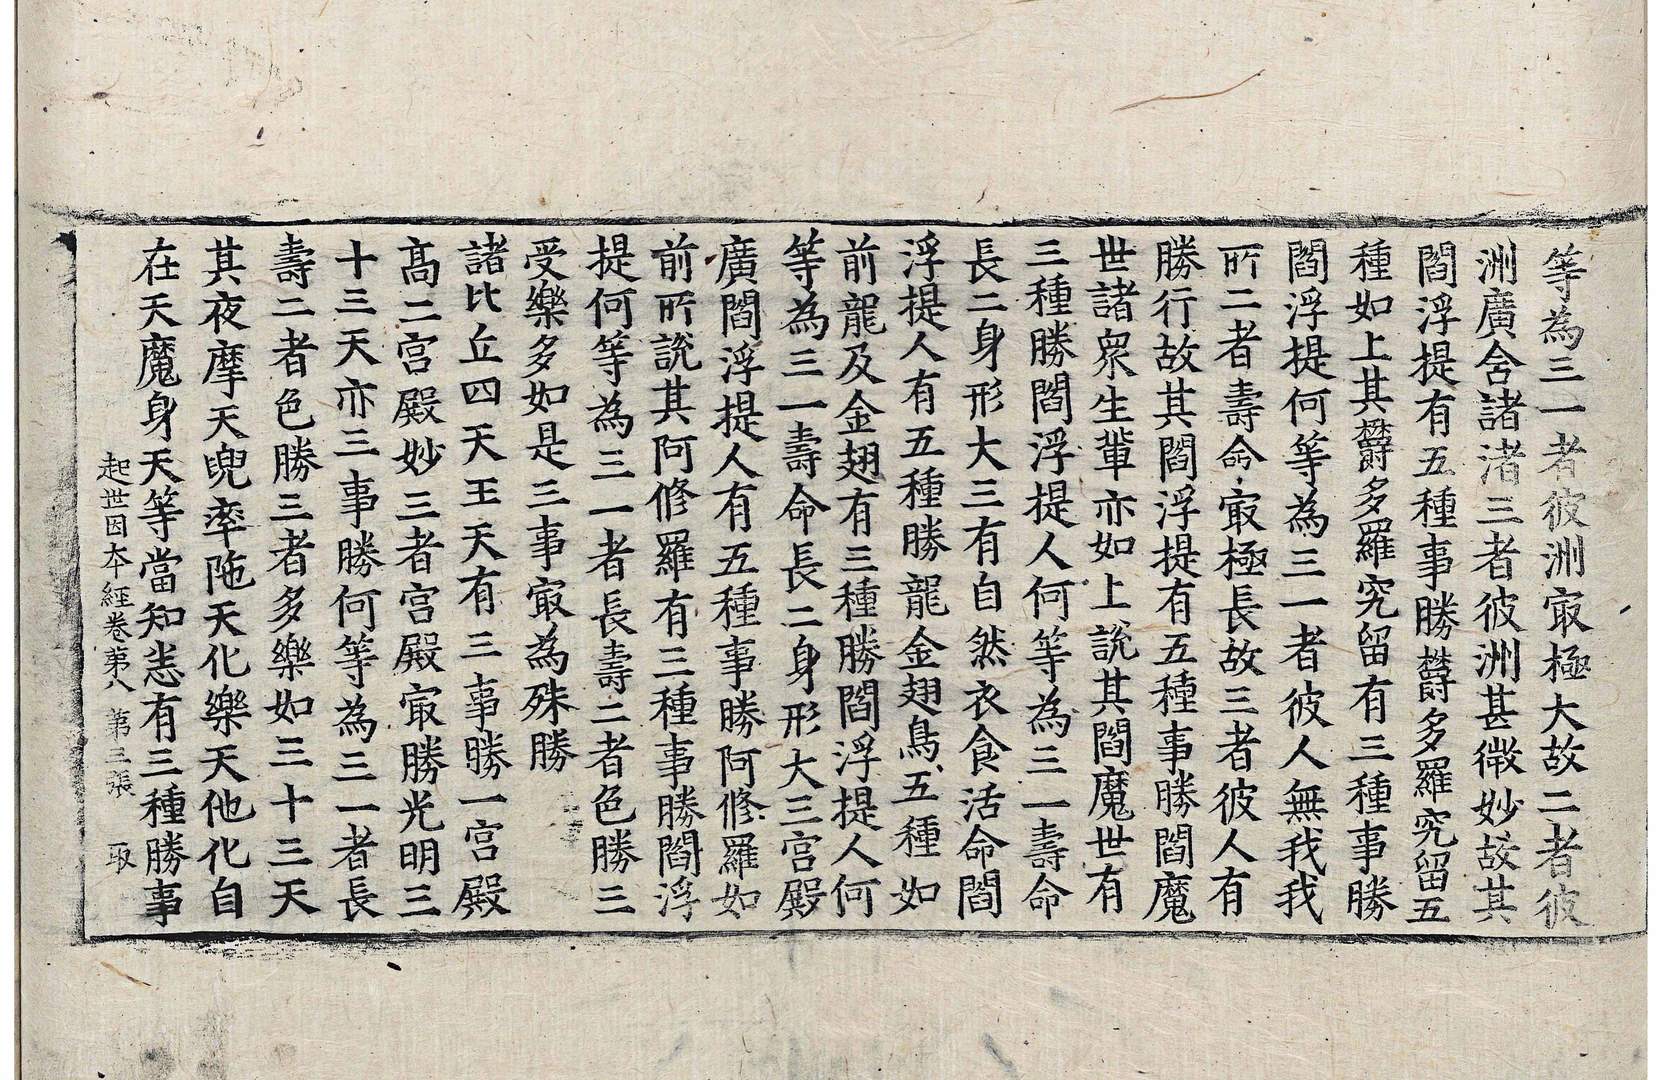 等為三一者彼洲㝡極大故二者彼
洲廣舍諸渚三者彼洲甚微妙故其
閻浮提有五種事勝欝多羅究留五
種如上其欝多羅究留有三種事勝
閻浮提何等為三一者彼人無我我
所二者壽命㝡極長故三者彼人有
勝行故其閻浮提有五種事勝閻魔
世諸衆生輩亦如上說其閻魔世有
三種勝閻浮提人何等為三一壽命
長二身形大三有自然衣食活命閻
浮提人有五種勝龍金翅鳥五種如
前龍及金翅有三種勝閻浮提人何
等為三一壽命長二身形大三宮殿
廣閻浮提人有五種事勝阿修羅如
前所說其阿修羅有三種事勝閻浮
提何等為三一者長壽二者色勝三
受樂多如是三事㝡為殊勝
諸比丘四天王天有三事勝一宮殿
高二宮殿妙三者宮殿㝡勝光明三
十三天亦三事勝何等為三一者長
壽二者色勝三者多樂如三十三天
其夜摩天兜率陁天化樂天他化自
在天魔身天等當知恙有三種勝事
起世因夲經卷苐八　苐三張　取